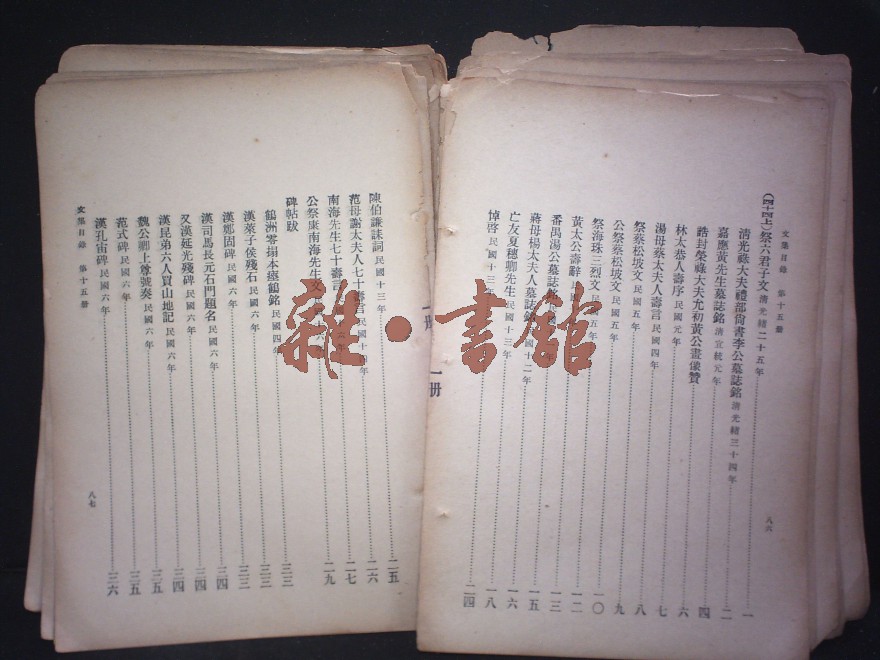 文集目錄 第十五册
(四十四上)祭六君子文 清光緒二十五年 一
清光祿大夫禮部尙書李公墓誌銘 清光緒三十四年 二
嘉應黃先生墓誌銘 清宣統元年 四
誥封榮祿大夫尤初黃公畫像贊 六
林太恭人壽序 民國元年 七
湯母蔡太夫人壽言 民國四年 八
祭蔡松坡文 民國五年 九
公祭蔡松坡文 民國五年 一〇
祭海珠三烈文 民國五年 一二
黃太公壽辭 一三
番禺湯公墓誌銘 年 一五
蔣母楊太夫人墓誌銘 國十二年 一六
亡友夏穗卿先生 民國十三年 一八
悼啓 民國十三年 二四
八六
陳伯謙誄詞 民國十三年 二五
范母謝太夫人七十壽言 民國十四年 二六
南海先生七十壽言 二七
公祭康南海先生文 二九
碑帖跋
鶴洲零搨本瘞鶴銘 民國四年 三三
漢萊子侯殘石 民國六年 三三
漢鄭固碑 民國六年 三三
漢司馬長元石門題名 民國六年 三四
又漢延光殘碑 民國六年 三四
漢昆弟六人買山地記 民國六年 三四
魏公卿上尊號奏 民國六年 三五
范式碑 民國六年 三五
漢孔宙碑 民國六年 三六
文集目錄 第十五册
八七
一册
一册
雜·書館